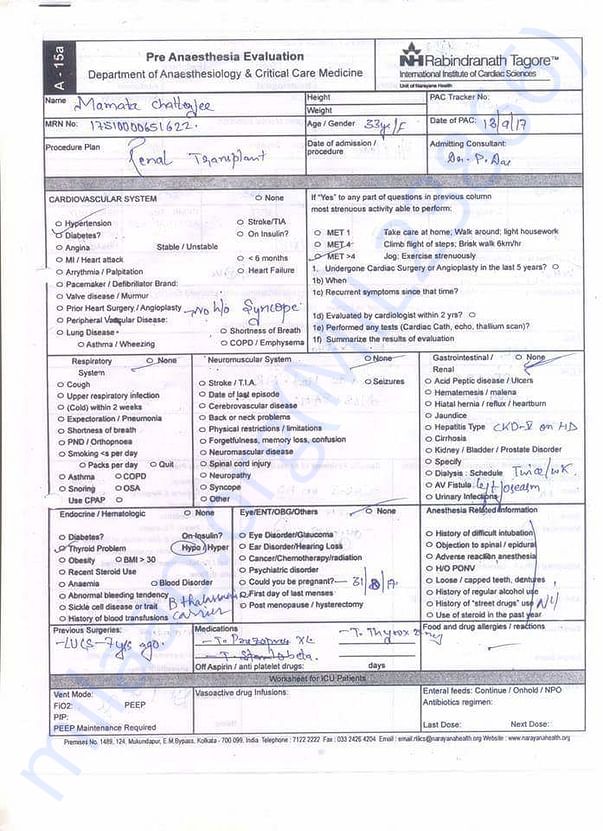 A - 15a
Pre Anaesthesia Evaluation
Department of Anaesthesiology & Critical Care Medicine
NH Rabindranath Tagore™
International Institute of Cardiac Sciences
Unit of Narayana Health
Name Mamata Chatterjee
Height
Weight
PAC Tracker No:
MRN No: 17510000651622.
Age / Gender 33yr/F
Date of PAC: 13/9/17
Procedure Plan Renal Transplant
Date of admission / procedure
Admitting Consultant: Dr. P. Das
CARDIOVASCULAR SYSTEM O None
O Hypertension O Stroke/TIA
O Diabetes? O On Insulin?
O Angina Stable / Unstable
O MI / Heart attack O < 6 months
O Arrythmia / Palpitation O Heart Failure
O Pacemaker / Defibrillator Brand:
O Valve disease / Murmur
O Prior Heart Surgery / Angioplasty No h/o Syncope
O Peripheral Vascular Disease:
O Lung Disease O Shortness of Breath
O Asthma / Wheezing O COPD / Emphysema
If "Yes" to any part of questions in previous column
most strenuous activity able to perform:
O MET 1 Take care at home; Walk around; light housework
O MET 4 Climb flight of steps; Brisk walk 6km/hr
O MET >4 Jog: Exercise strenuously
1. Undergone Cardiac Surgery or Angioplasty in the last 5 years? O
1b) When
1c) Recurrent symptoms since that time?
1d) Evaluated by cardiologist within 2 yrs? O
1e) Performed any tests (Cardiac Cath, echo, thalium scan)?
1f) Summarize the results of evaluation
Respiratory System O None
O Cough
O Upper respiratory infection
O (Cold) within 2 weeks
O Expectoration / Pneumonia
O Shortness of breath
O PND / Orthopnoea
O Smoking <s per day
O Packs per day O Quit
O Asthma O COPD
O Snoring O OSA
Use CPAP O
Neuromuscular System O None
O Stroke / T.I.A. O Seizures
O Date of last episode
O Cerebrovascular disease
O Back or neck problems
O Physical restrictions / limitations
O Forgetfulness, memory loss, confusion
O Neuromuscular disease
O Spinal cord injury
O Neuropathy
O Syncope
O Other
Gastrointestinal / Renal O None
O Acid Peptic disease / Ulcers
O Hematemesis / malena
O Hiatal hernia / reflux / heartburn
O Jaundice
O Hepatitis Type CKD-V on HD
O Cirrhosis
O Kidney / Bladder / Prostate Disorder
O Specify
O Dialysis : Schedule Twice/wk.
O AV Fistula: left forearm
O Urinary Infections
Endocrine / Hematologic O None
O Diabetes? On-Insulin?
O Thyroid Problem Hypo / Hyper
O Obesity O BMI > 30
O Recent Steroid Use
O Anaemia O Blood Disorder
O Abnormal bleeding tendency
O Sickle cell disease or trait B thalassemia
O History of blood transfusions carrier
Eye/ENT/OBG/Others O None
O Eye Disorder/Glaucoma
O Ear Disorder/Hearing Loss
O Cancer/Chemotherapy/radiation
O Psychiatric disorder
O Could you be pregnant? 31/8/17
O First day of last menses
O Post menopause / hysterectomy
Anesthesia Related Information
O History of difficult intubation
O Objection to spinal / epidural
O Adverse reaction anesthesia
O H/O PONV
O Loose / capped teeth, dentures
O History of regular alcohol use
O History of "street drugs" use Nil
O Use of steroid in the past year
Previous Surgeries:
-LUCS-7yrs ago.
Medications
- T. XL
- T. Stamlobeta.
- T. Thyrox
Off Aspirin / anti platelet drugs: days
Food and drug allergies / reactions
Worksheet for ICU Patients
Vent Mode:
FiO2: PEEP
PIP:
PEEP Maintenance Required
Vasoactive drug Infusions:
Enteral feeds: Continue / Onhold / NPO
Antibiotics regimen:
Last Dose: Next Dose:
Premises No. 1489, 124, Mukundapur, E.M.Bypass, Kolkata - 700 099, India Telephone : 7122 2222 Fax : 033 2426 4204 Email : email.rtiics@narayanahealth.org Website : www.narayanahealth.org